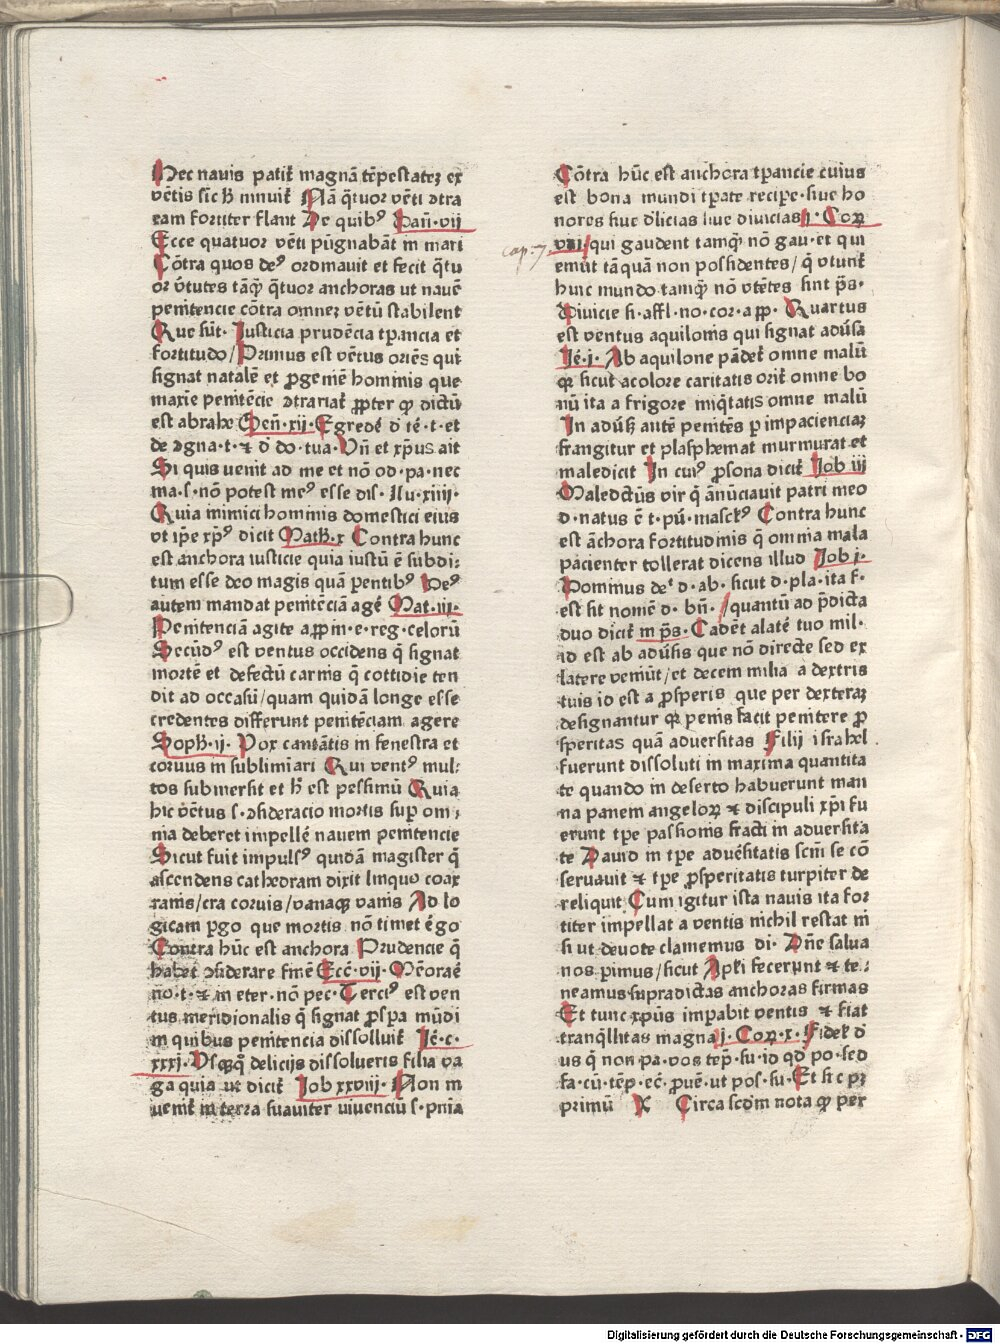 Hec nauis patit᷑ magnā tēpestatez ex
vētis sic h̄ innuit᷑ Nā q̄tuor vēti ɔtra
eam fortiter flant De quibꝰ Dani·vij
Ecce quatuor vēti pūgnabāt in mari
Cōtra quos deꝰ ordinauit et fecit q̄tu
or v̄tutes tāqꝫ q̄tuor anchoras ut nauē
penitencie cōtra omnez vētū stabilent
Que sūt· Iusticia prudēcia tꝑancia et
fortitudo/ Primus est vētus oriēs qui
signat natalē et ꝓgeniē hominis que
maxīe penitēcie ɔtrariat᷑ ꝓpter qꝫ dictū
est abrahe Gen̄·xij· Egredē d̄ tē·t·et
de ɔgna·t·⁊ d̄ do·tua· Vn̄ et xp̄us ait
Si quis uenit ad me et nō od·pa·nec
ma·s·nō potest meꝰ esse dis· Lu·xiiij·
Quia inimici hominis domestici eius
vt ip̄e xp̄ꝰ dicit Math̄·x Contra hunc
est anchora iusticie quia iustū ē subdi⸗
tum esse deo magis quā ꝑentibꝰ Deꝰ
autem mandat penitēciā agē Mat·iij·
Penitenciā agite aꝓpin·e·reg·celorū
Secūdꝰ est ventus occidens q̄ signat
mortē et defectū carnis q̄ cottidie ten
dit ad occasū/quam quidā longe esse
credentes differunt penitēciam agere
Soph̄·ij· Vox cantātis in fenestra et
coruus in subliminari Qui ventꝰ mul⸗
tos submersit et h̄ est pessimū Quia
hic vētus s·ɔsideracio mortis suꝑ om⸗
nia deberet impellē nauem penitencie
Sicut fuit impulsꝰ quidā magister q̄
ascendens cathedram dixit linquo coax
ranis/cra coruis/vanaqꝫ vanis Ad lo
gicam pergo que mortis nō timet ergo
Contra hūc est anchora Prudencie q̄
habet ɔsiderare finē Ecc̄·vij· Memorae
no·t·⁊ in eter·nō pec· Terciꝰ est ven
tus meridionalis q̄ signat ꝓspa mūdi
in quibus penitencia dissoluit᷑ Iē·c·
xxxj· Vsqꝫq̄ delicijs dissolueris filia va
ga quia ut dicit᷑ Iob xxviij· Non in
uenit᷑ in terra suauiter uiuenciū s·pn̄ia
Cōtra hūc est anchora tꝑancie cuius
est bona mundi tꝑate recipe·siue ho
nores siue d̓licias siue diuicias j·Coꝝ
vii· qui gaudent tamqꝫ nō gau·et qui
emūt tāquā non possidentes/q̄ vtunt᷑
hinc mundo tamqꝫ nō vtētes sint p̄s·
Diuicie si·affl·no·cor·a ꝓp· Quartus
est ventus aquilonis qui signat adūsa
Iē·j· Ab aquilone pādet᷑ omne malū
qꝛ sicut acolore caritatis orit᷑ omne bo
nū ita a frigore iniq̄tatis omne malū
In adūsꝫ autē penitēs ꝑ impacienciaꝫ
frangitur et plasphemat murmurat et
maledicit In cuiꝰ ꝑsona dicit᷑ Iob iij
Maledictūs vir q̄ anūciauit patri meo
d·natus ē t·pū·masc̄kꝰ Contra hunc
est āchora fortitudinis q̄ omnia mala
pacienter tollerat dicens illud Iob j·
Dominus deꝰ d·ab·sicut d·pla·ita f·
est sit nomē d·bn̄· /quantū ad p̄dicta
duo dicit᷑ in p̄s· Cadēt alatē tuo mil·
id est ab adūsis que nō directe sed ex
latere veniūt/et decem milia a dextris
tuis id est a ꝓsperis que per dexteraꝫ
designantur qꝛ penis facit penitere ꝓ
speritas quā aduersitas Filij israhel
fuerunt dissoluti in maxima quantita
te quando in deserto habuerunt man
na panem angeloꝝ ⁊ discipuli xp̄i fu
erunt tꝑe passionis fracti in aduersita
te Dauid in tꝑe aduēsitatis scm̄ se cō
seruauit ⁊ tꝑe ꝓsperitatis turpiter de
reliquit Cum igitur ista nauis ita for
titer impellat a ventis nichil restat ni
si ut deuote clamemus di· Dn̄e salua
nos ꝑimus/sicut Apl̄i fecerunt ⁊ te⸗
neamus supradictas anchoras firmas
Et tunc xp̄us imꝑabit ventis ⁊ fiat
tranq̄llitas magna j·Coꝝ·x· Fidel᷑ d̄
us q̄ non pa·vos tēp·su·id qd̄ po·sed
fa·cū·tēp·ec̄·ꝓuē·ut pos·su· Et sic pꝫ
primū X Circa scd̄m nota qꝫ per
cap: 7.
Digitalisierung gefördert durch die Deutsche Forschungsgemeinschaft - DFG